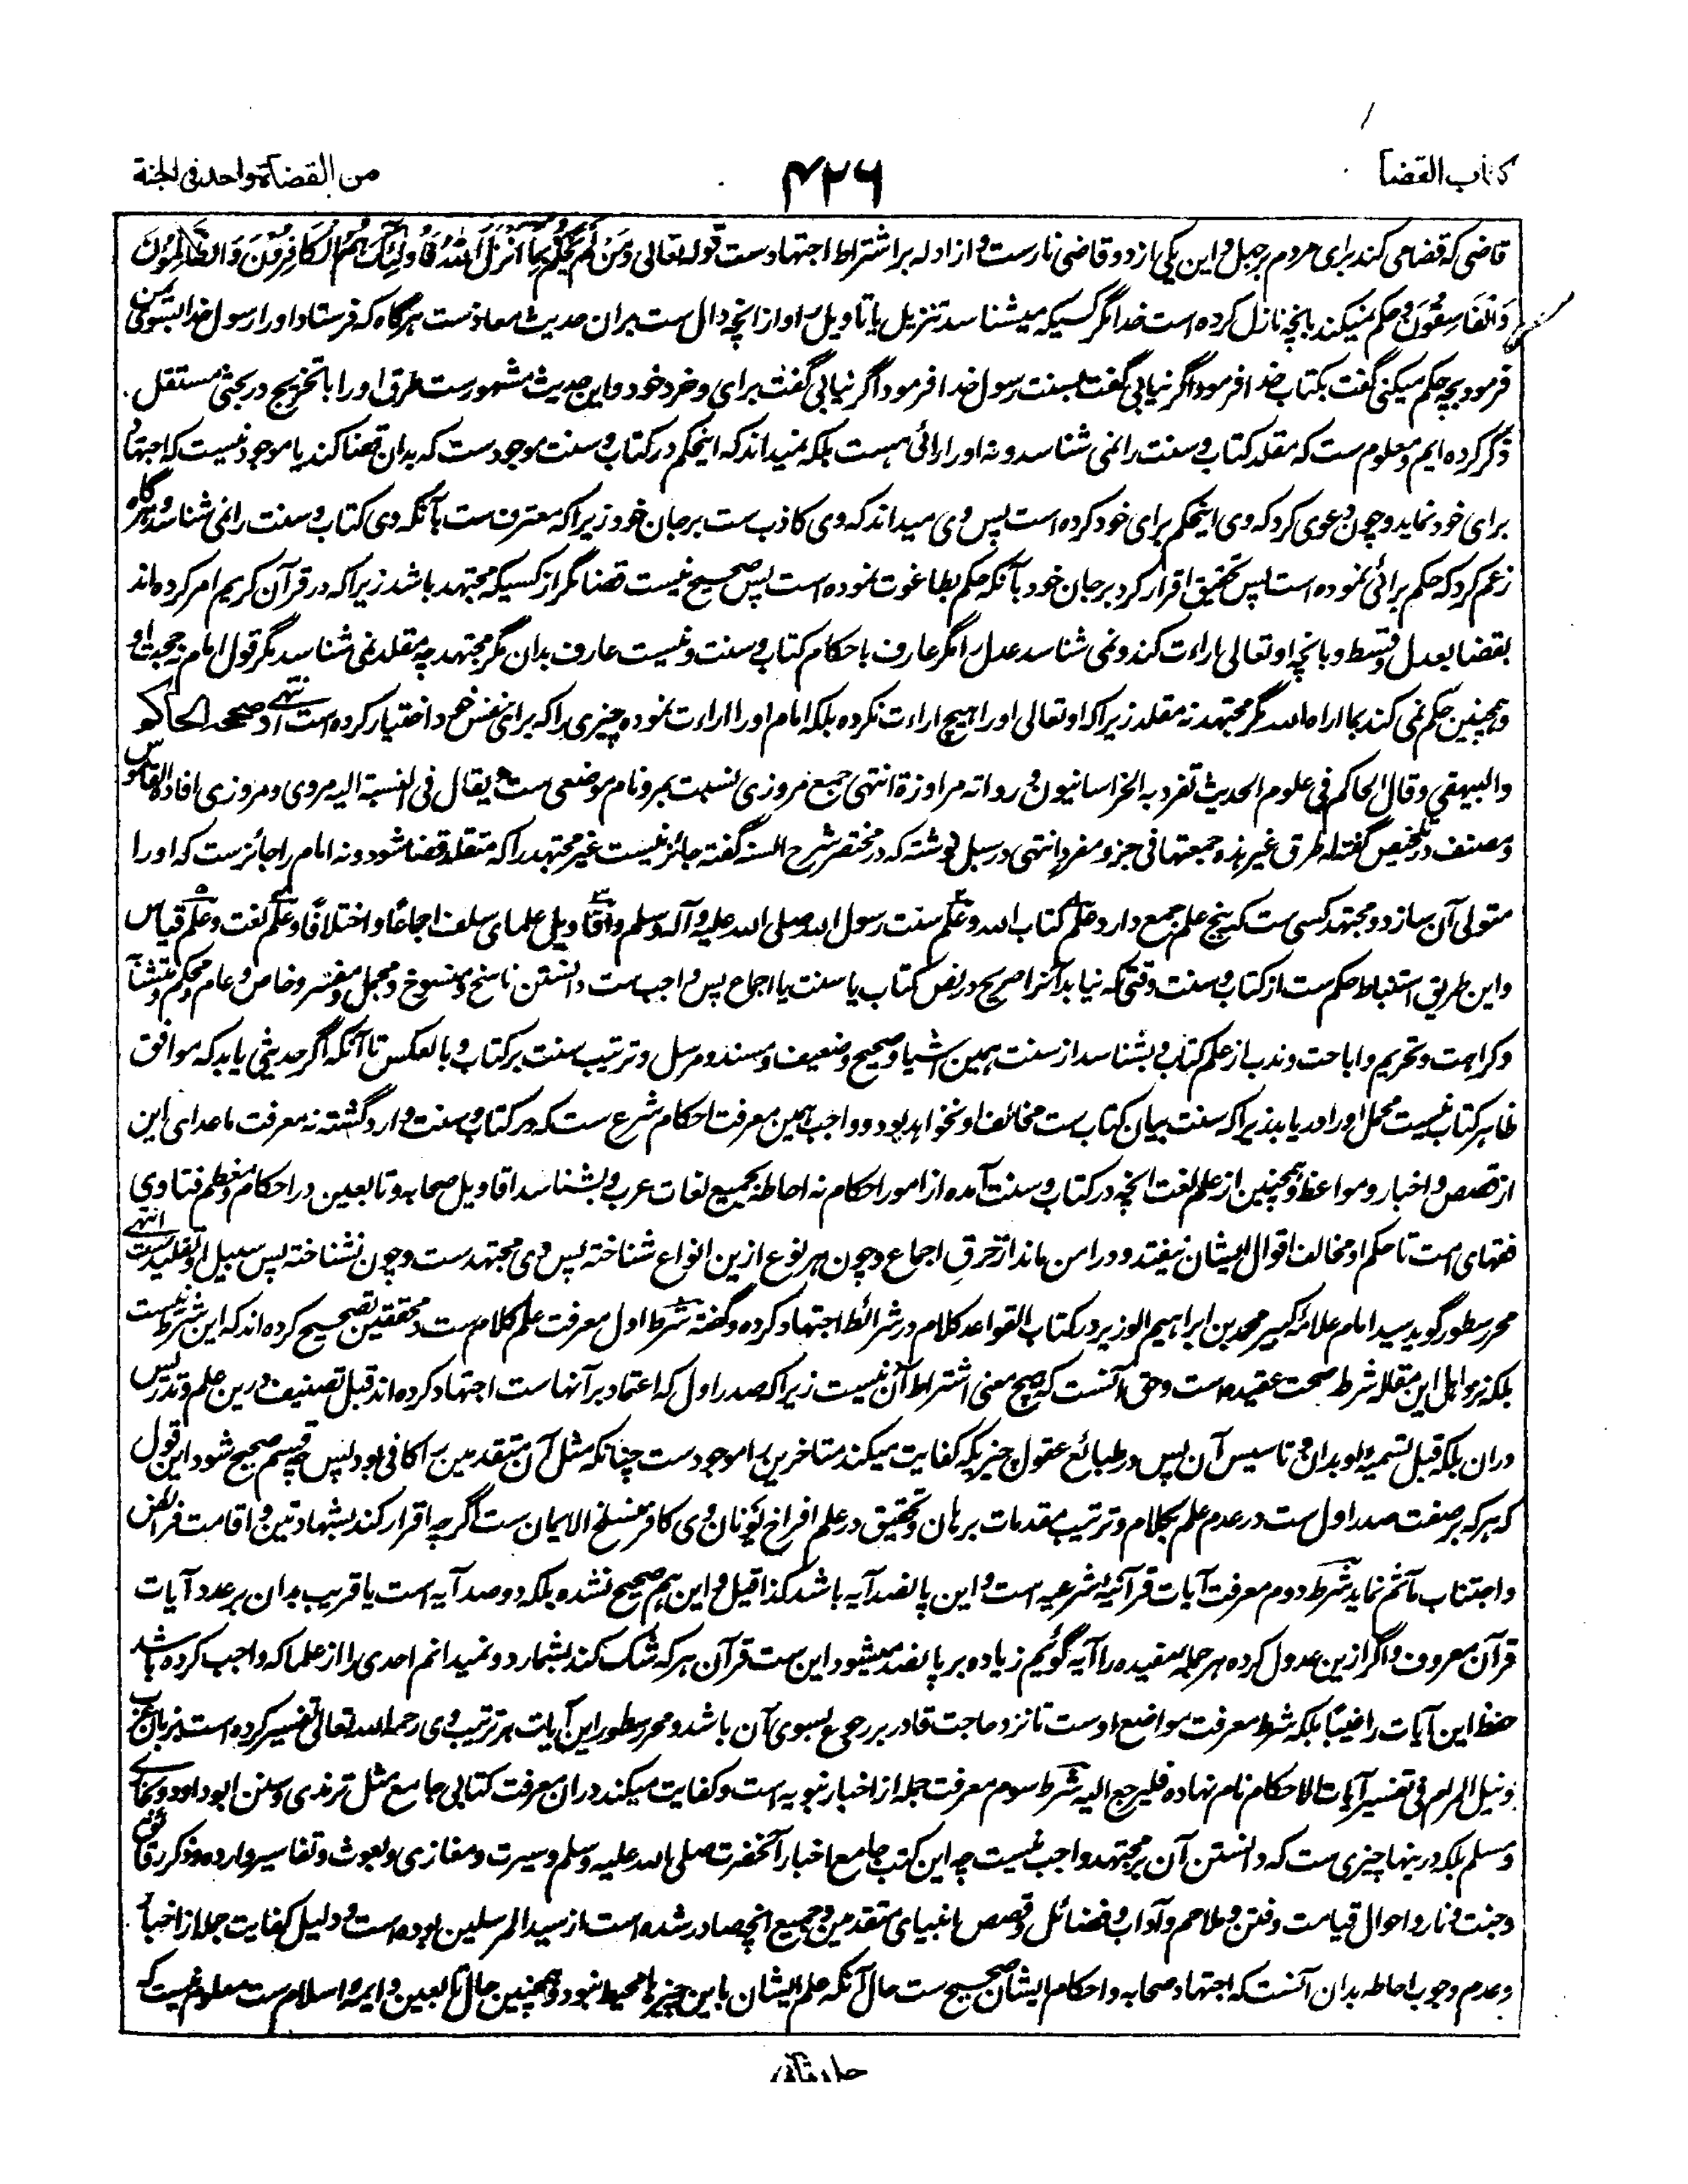 کتاب القضا
۴۲۶
من القضاة واحد فی الجنة
قاضی که قضا می کند برای مردم بر جهل و این یکی از دو قاضی نارست و از ادله بر اشتراط اجتهادست قوله تعالی وَمَنْ لَمْ يَحْكُمْ بِمَا أَنْزَلَ اللهُ فَأُولَئِكَ هُمُ الْكَافِرُونَ وَالظَّالِمُونَ
وَالْفَاسِقُونَ و حکم نمیکند بانچه نازل کرده است خدا مگر کسیکه میشناسد تنزیل یا تاویل را و از انچه دال ست بران حدیث معاذست هرگاه که فرستاد او را رسول خدا بسوی یمن
فرمود بچه حکم میکنی گفت بکتاب خدا فرمود اگر نیابی گفت بسنت رسول خدا فرمود اگر نیابی گفت برای و خرد خود و این حدیث مشهورست طرق او را با تخریج در بحثی مستقل
ذکر کرده ایم و معلوم ست که مقلد کتاب و سنت را نمی شناسد و نه او را رائی هست بلکه نمیداند که اینحکم در کتاب و سنت موجودست که بدان قضا کند یا موجود نیست که اجتهاد
برای خود نماید و چون دعوی کرد که وی اینحکم برای خود کرده است پس وی میداند که وی کاذب ست بر جان خود زیرا که معترف ست بآنکه وی کتاب و سنت را نمی شناسد و هرگاه
زعم کرد که حکم برائی نموده است پس تحقیق اقرار کرد بر جان خود بآنکه حکم بطاغوت نموده است پس صحیح نیست قضا مگر از کسیکه مجتهد باشد زیرا که در قرآن کریم امر کرده اند
بقضا بعدل و قسط و بانچه او تعالی اراءت کند و نمی شناسد عدل را مگر عارف باحکام کتاب و سنت و نیست عارف بدان مگر مجتهد چه مقلد نمی شناسد مگر قول امام نه حجت او
و همچنین حکم نمی کند بما اراه الله مگر مجتهد نه مقلد زیرا که او تعالی او را هیچ اراءت نکرده بلکه امام او را اراءت نموده چیزی را که برای نفس خود اختیار کرده است انتهی و صححه الحاکم
والبیهقی و قال الحاکم فی علوم الحدیث تفرد به الخراسانیون و رواته مراوزة انتهی جمع مروزی نسبت بمرو نام موضعی ست و یقال فی النسبة الیه مروی و مروزی افاده القاموس
و مصنف در تلخیص گفته له طرق غیر هذه جمعتها فی جزو مفرد انتهی در سبل نوشته که در مختصر شرح السنه گفته جائز نیست غیر مجتهد را که متقلد قضا شود و نه امام را جائزست که او را
متولی آن سازد و مجتهد کسی ست که پنج علم جمع دارد علم کتاب الله و علم سنت رسول الله صلی الله علیه و آله وسلم و اقاویل علمای سلف اجماعا و اختلافا و علم لغت و علم قیاس
و این طریق استنباط حکم ست از کتاب و سنت وقتی که نیابد آنرا صریح در نص کتاب یا سنت یا اجماع پس واجب ست دانستن ناسخ و منسوخ و مجمل و مفسر و خاص و عام و محکم و متشابه
و کراهت و تحریم و اباحت و ندب از علم کتاب و بشناسد از سنت همین اشیا و صحیح و ضعیف و مسند و مرسل و ترتیب سنت بر کتاب و بالعکس تا آنکه اگر حدیثی یابد که موافق
ظاهر کتاب نیست محمل او را دریابد زیرا که سنت بیان کتاب ست مخالف او نخواهد بود و واجب همین معرفت احکام شرع ست که در کتاب و سنت وارد گشته نه معرفت ماعدای این
از قصص و اخبار و مواعظ و همچنین از علم لغت انچه در کتاب و سنت آمده از امور احکام نه احاطه بجمیع لغات عرب و بشناسد اقاویل صحابه و تابعین در احکام و معظم فتاوی
فقهای امت تا حکم او مخالف اقوال ایشان نیفتد و در امن ماند از خرق اجماع و چون هر نوع ازین انواع شناخته پس وی مجتهدست و چون نشناخته پس سبیل او تقلیدست انتهی
محرر سطور گوید سید امام علامه کبیر محمد بن ابراهیم الوزیر در کتاب القواعد کلام در شرائط اجتهاد کرده و گفته شرط اول معرفت علم کلام ست و محققین تصحیح کرده اند که این شرط نیست
بلکه نزد اهل این مقاله شرط صحت عقیده است و حق آنست که هیچ معنی اشتراط آن نیست زیرا که صدر اول که اعتماد بر آنهاست اجتهاد کرده اند قبل تصنیف درین علم و تدریس
دران بلکه قبل تسمیه او بدان و تاسیس آن پس در طبائع عقول چیزیکه کفایت میکند متاخرین را موجودست چنانکه مثل آن متقدمین را کافی بود پس چه قسم صحیح شود این قول
که هر که بر صفت صدر اول ست در عدم علم بکلام و ترتیب مقدمات برهان و تحقیق در علم افراخ یونان وی کافر منسلخ الایمان ست اگرچه اقرار کند بشهادتین و اقامت فرائض
و اجتناب مآثم نماید شرط دوم معرفت آیات قرآنیه شرعیه است و این پانصد آیه باشد کذا قیل و این هم صحیح نشده بلکه دو صد آیه است یا قریب بدان بر عدد آیات
قرآن معروف و اگر ازین عدول کرده هر جمله مفیده را آیه گوئیم زیاده بر پانصد میشود این ست قرآن هر که شک کند بشمارد و نمیدانم احدی را از علما که واجب کرده باشد
حفظ این آیات را غیبا بلکه شرط معرفت مواضع اوست تا نزد حاجت قادر بر رجوع بسوی آن باشد و محرر سطور این آیات بر ترتیب وی رحمه الله تعالی تفسیر کرده است بزبان عرب
و نیل المرام فی تفسیر آیات الاحکام نام نهاده فلیرجع الیه شرط سوم معرفت جمله از اخبار نبویه است و کفایت میکند دران معرفت کتابی جامع مثل ترمذی و سنن ابوداود و بخاری
و مسلم بلکه درینها چیزی ست که دانستن آن بر مجتهد واجب نیست چه این کتب جامع اخبار آنحضرت صلی الله علیه وسلم و سیرت و مغازی و بعوث و تفاسیر وارده و ذکر رقائق
و جنت و نار و احوال قیامت و فتن و ملاحم و آداب و فضائل و قصص انبیای متقدمین و جمیع انچه صادر شده است از سید المرسلین بوده است و دلیل کفایت جمله از اخبار
و عدم وجوب احاطه بدان آنست که اجتهاد صحابه و احکام ایشان صحیح ست حال آنکه علم ایشان باین چیزها محیط نبود و همچنین حال تابعین و ایمه اسلام ست معلوم نیست که